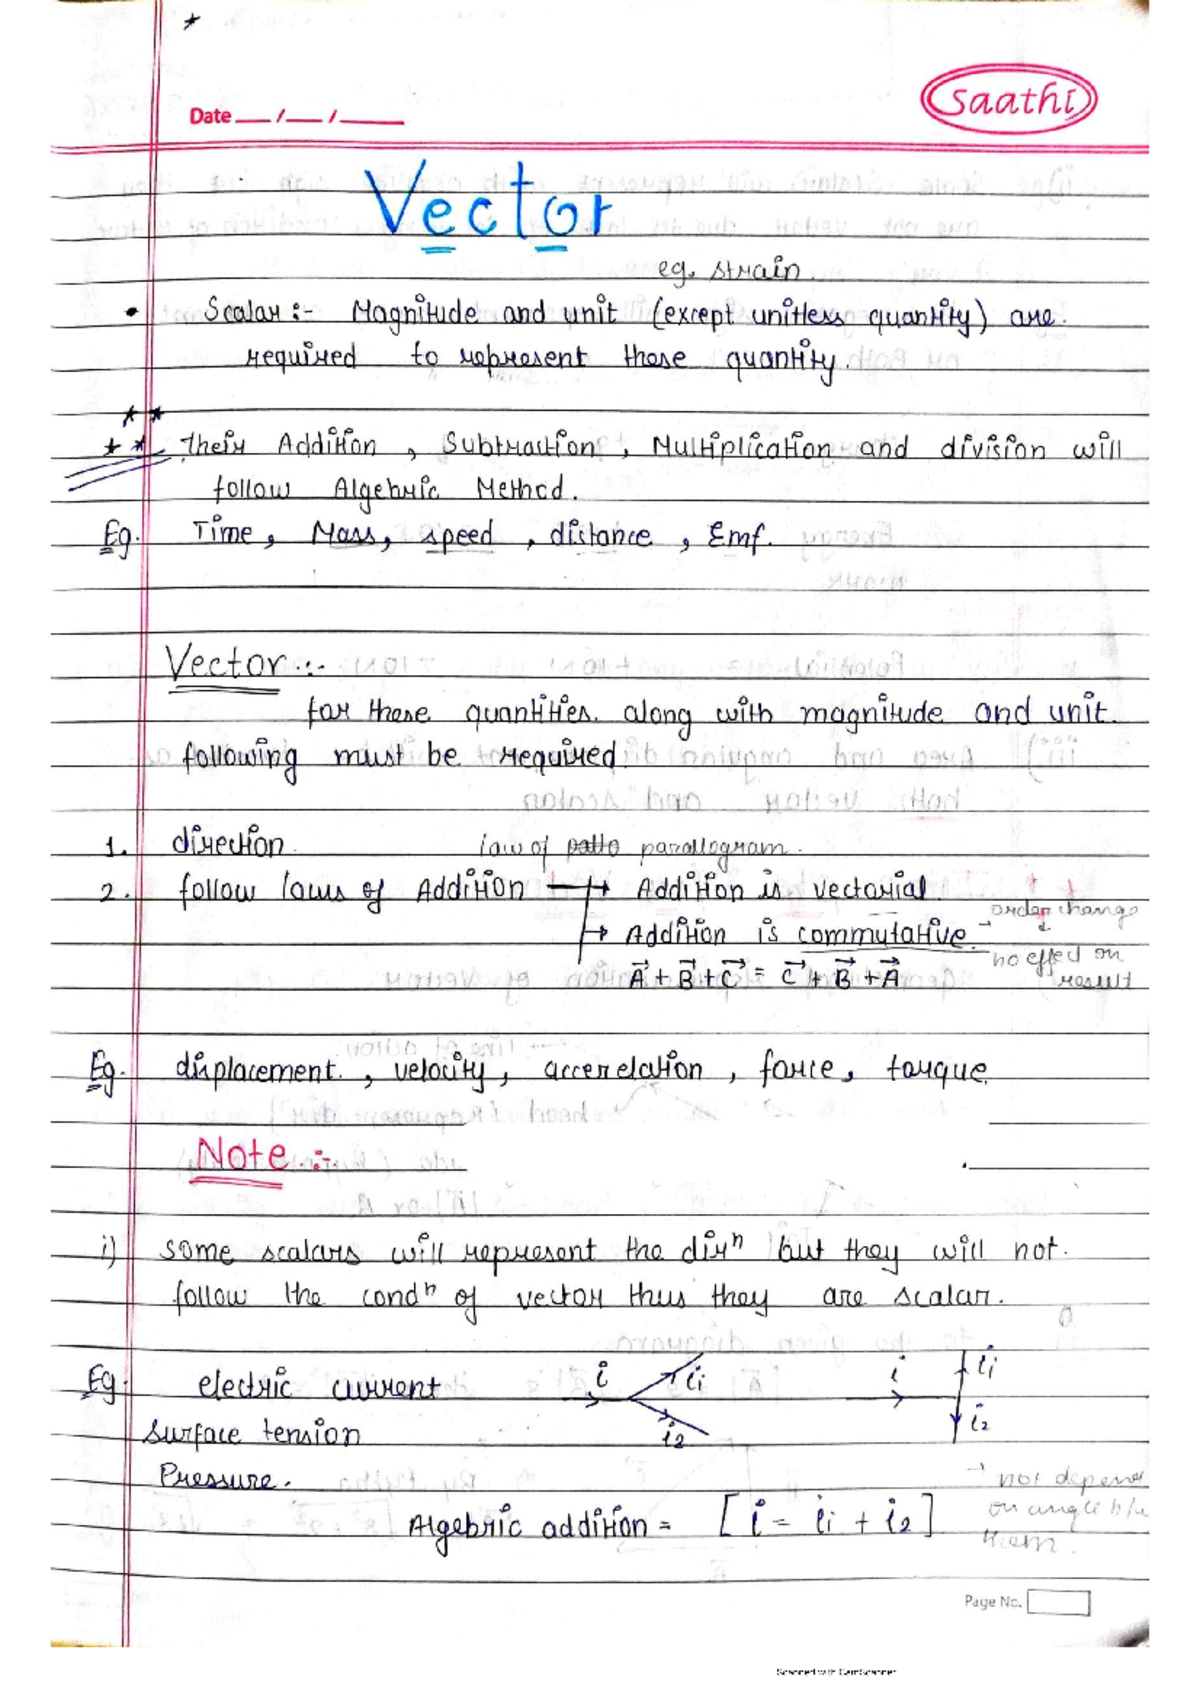 Date __ / __ / ____
saathi
Vector
eg. strain
• Scalar :- Magnitude and unit (except unitless quantity) are
required to represent these quantity.
Their Addition , Subtraction , Multiplication and division will
follow Algebric Method.
Eg. Time, Mass, speed , distance , Emf.
Vector :-
for these quantities along with magnitude and unit
following must be required.
1. direction
law of parallogram.
2. follow laws of Addition → Addition is vectorial.
order change
→ Addition is commutative. →
no effect on
A⃗ + B⃗ + C⃗ = C⃗ + B⃗ + A⃗
result
Eg. displacement , velocity , accerelation , force , torque.
Note :-
i) some scalars will represent the dirⁿ but they will not
follow the condⁿ of vector thus they are scalar.
Eg. electric current
i i₁ i₂
i i₁ i₂
Surface tension
Pressure.
→ not depend
Algebric addition = [ i = i₁ + i₂ ]
on angle b/w
them.
Page No.
Scanned with CamScanner